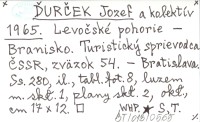 ĎURČEK Jozef a kolektív
1965. Levočské pohorie –
Branisko. Turistický sprievodca
ČSSR, zväzok 54. – Bratislava.
Ss. 280, il., tabl. fot. 8, luzem
m. skt. 1, plany skt. 2, okł.,
cm 17 x 12. □ WHP. ★ S.T.